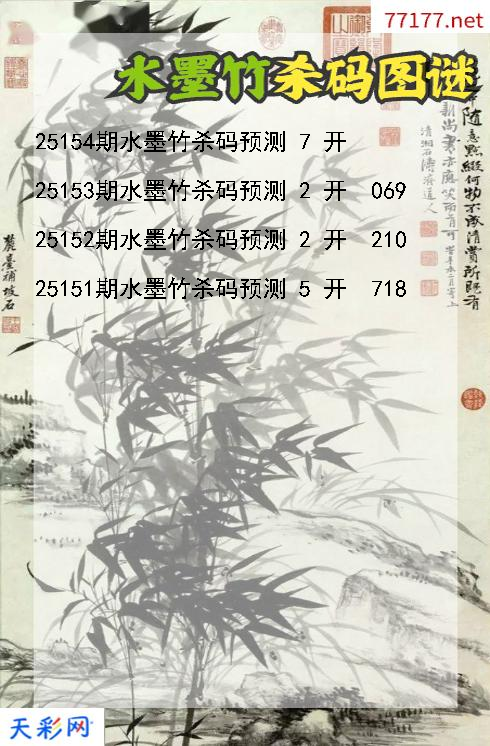 77177.net
水墨竹杀码图谜
25154期水墨竹杀码预测 7 开
25153期水墨竹杀码预测 2 开 069
25152期水墨竹杀码预测 2 开 210
25151期水墨竹杀码预测 5 开 718
随意點綴何物不成清賞所既有
清湘石濤濟道人
天彩网